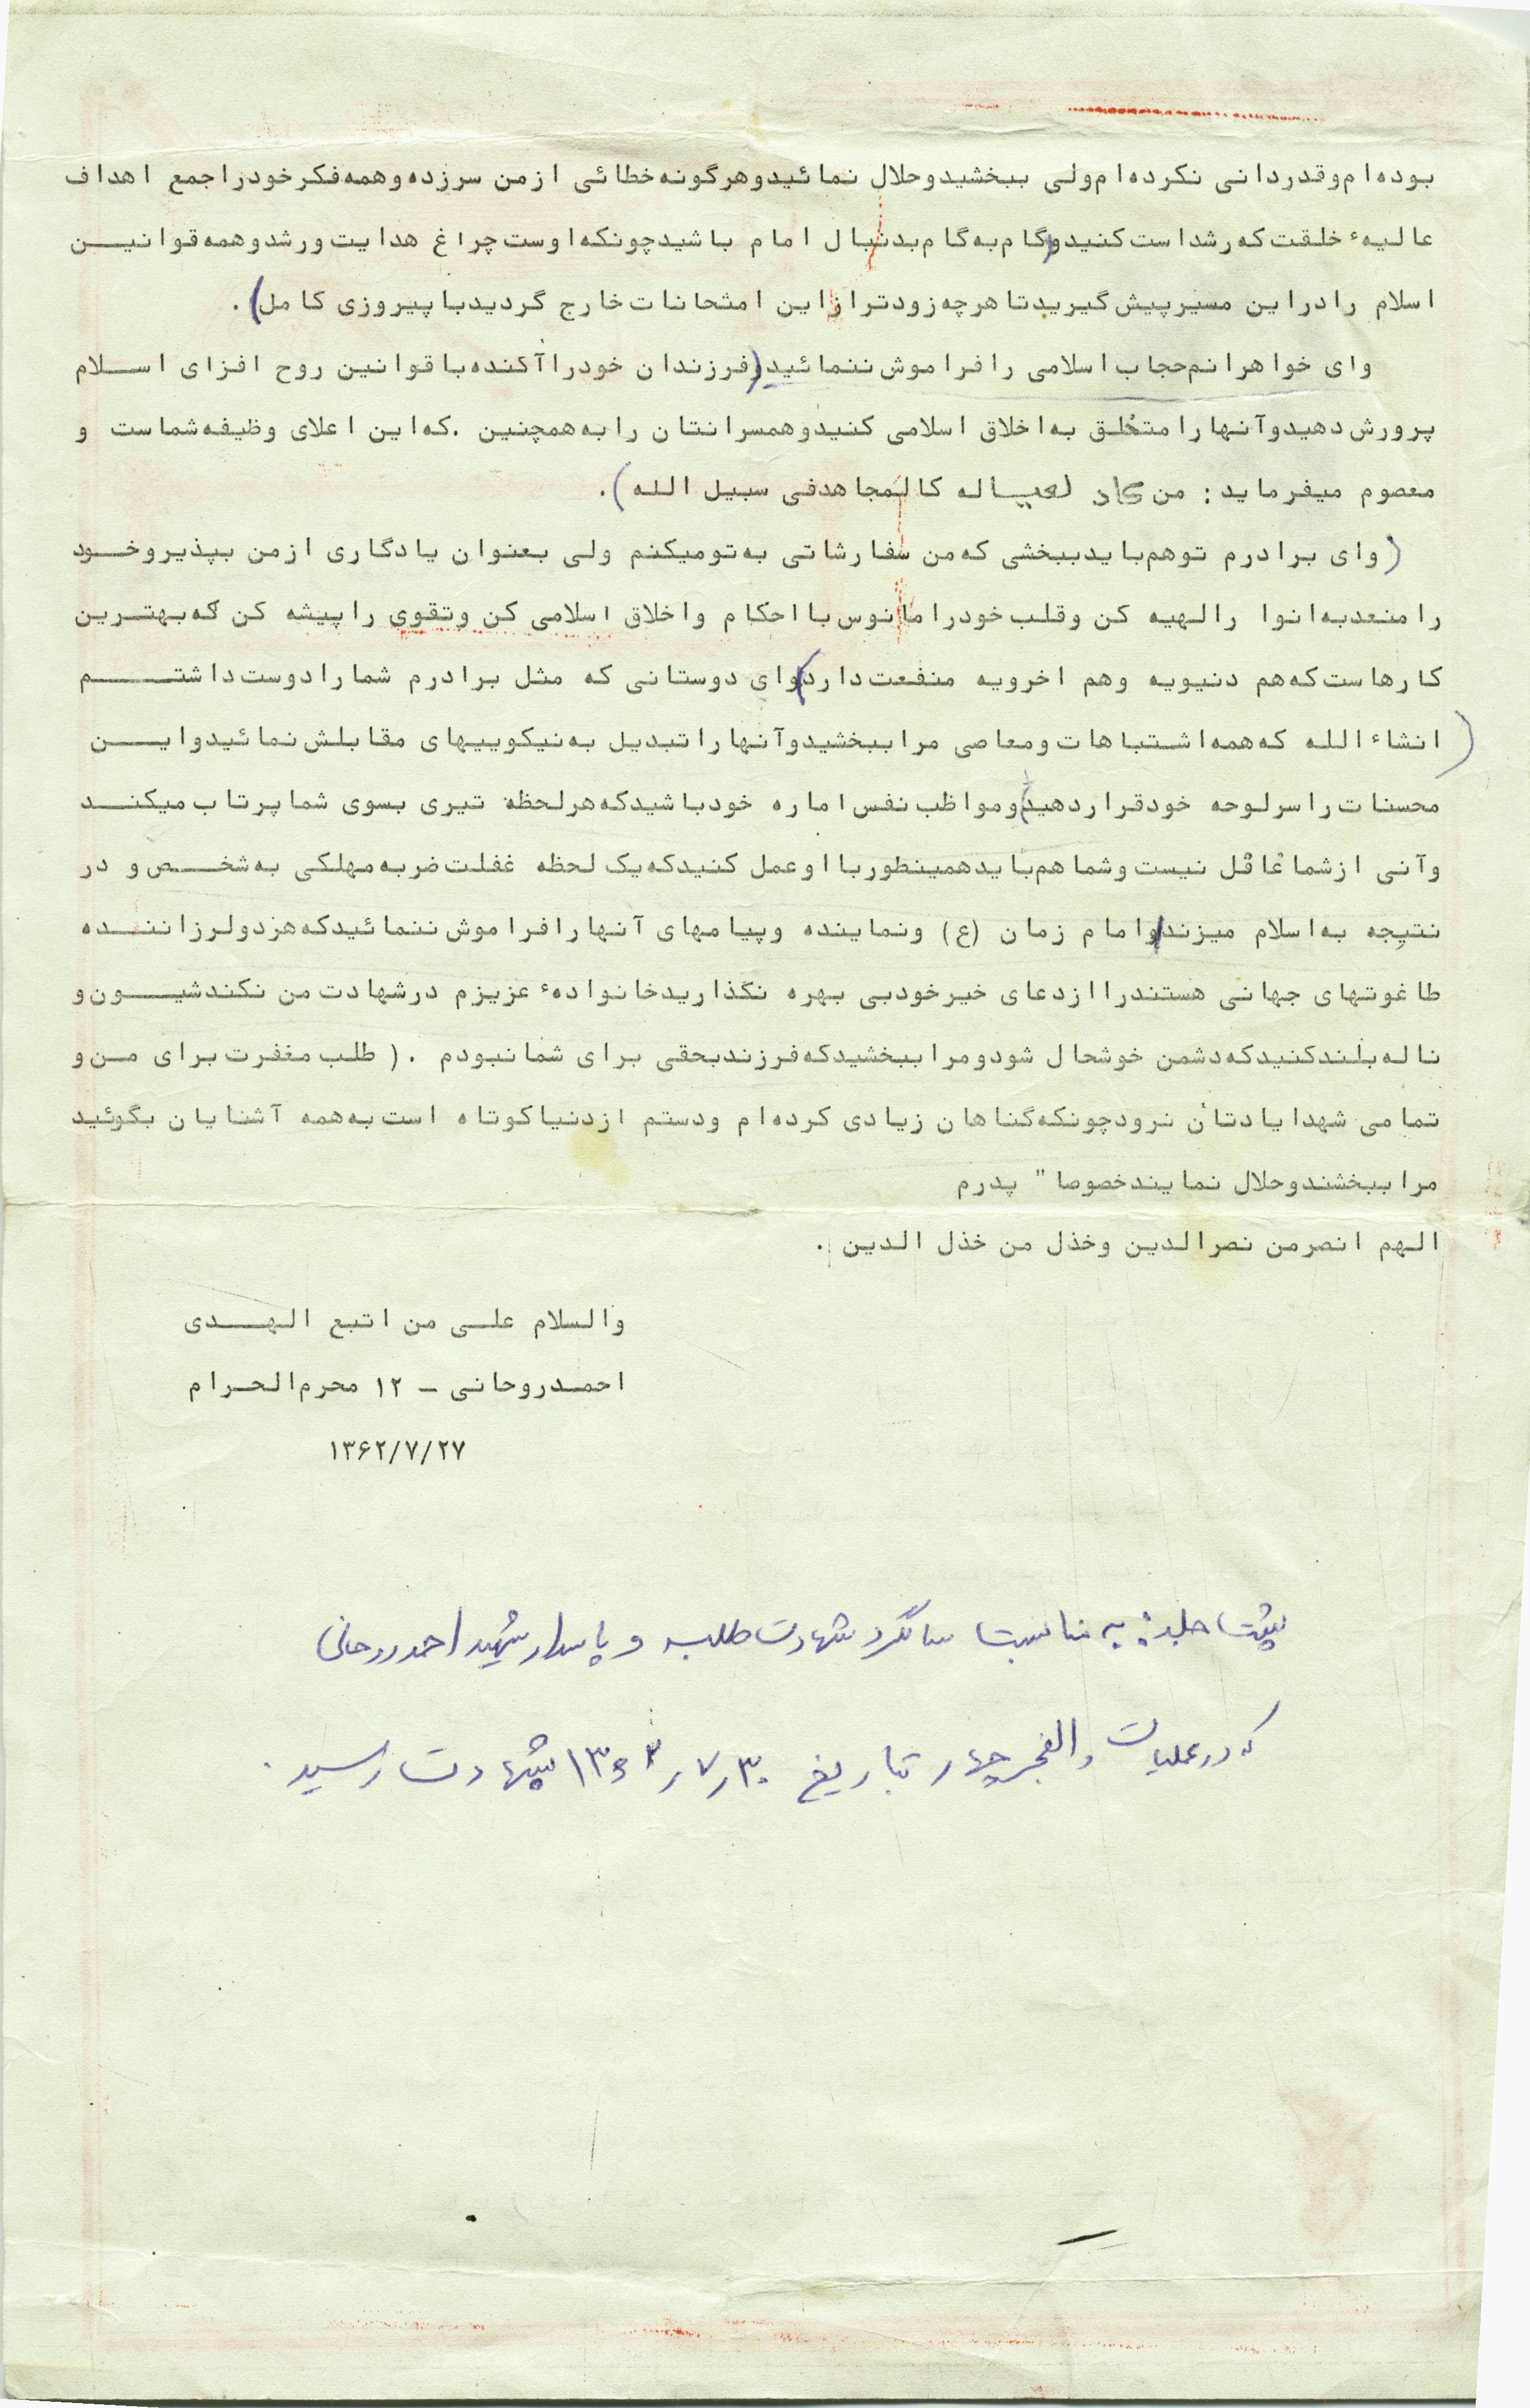 بوده‌ام وقدردانی نکرده‌ام ولی ببخشید وحلال نمائید وهرگونه خطائی ازمن سرزده وهمه فکرخودراجمع اهداف
عالیهٔ خلقت که رشد است کنید (وگام به گام بدنبال امام باشید چونکه اوست چراغ هدایت ورشد وهمه قوانیـــن
اسلام رادراین مسیرپیش گیرید تاهرچه زودترازاین امتحانات خارج گردید باپیروزی کامل) .
وای خواهرانم حجاب اسلامی را فراموش ننمائید (فرزندان خودراآکنده باقوانین روح افزای اســلام
پرورش دهید وآنهارامتخلق به اخلاق اسلامی کنید وهمسرانتان رابه همچنین .که این اعلای وظیفه شماست و
معصوم میفرماید : من کاد لعیاله کالمجاهد فی سبیل الله ) .
(وای برادرم توهم باید ببخشی که من سفارشاتی به تومیکنم ولی بعنوان یادگاری ازمن بپذیر وخــود
رامنعد به انوا رالهیه کن وقلب خودرامانوس بااحکام واخلاق اسلامی کن وتقوی راپیشه کن که بهتــرین
کارهاست که هم دنیویه وهم اخرویه منفعت دارد) وای دوستانی که مثل برادرم شمارادوست داشتـــــم
(انشاءالله که همه اشتباهات ومعاصی مراببخشید وآنهاراتبدیل به نیکوییهای مقابلش نمائید وایــــن
محسنات راسرلوحه خودقراردهید) ومواظب نفس اماره خودباشید که هرلحظه تیری بسوی شماپرتاب میکنــد
وآنی ازشما غافل نیست وشماهم باید همینطورباا وعمل کنید که یک لحظه غفلت ضربه مهلکی به شخــص و در
نتیجه به اسلام میزند / وامام زمان (ع) ونماینده وپیامهای آنهارافراموش ننمائید که هزدولرزاننــده
طاغوتهای جهانی هستند راازدعای خیرخودبی بهره نگذارید خانوادهٔ عزیزم درشهادت من نکند شیــــون و
ناله بلند کنید که دشمن خوشحال شود ومراببخشید که فرزند بحقی برای شمانبودم . ( طلب مغفرت برای مــن و
تمامی شهدا یادتان نرود چونکه گناهان زیادی کرده‌ام ودستم ازدنیاکوتاه است به همه آشنایان بگوئید
مراببخشند وحلال نمایند خصوصا" پدرم
الهم انصرمن نصرالدین وخذل من خذل الدین .
والسلام علــی من اتبع الهــــدی
احمـدروحانی ــ ۱۲ محرم الحـرام
۱۳۶۲/۷/۲۷
پشت جلد : به مناسبت سالگرد شهادت طلبه و پاسدار شهید احمد روحانی
که در عملیات والفجر چهار بتاریخ ۱۳۶۲٫۷٫۳۰ بشهادت رسید .